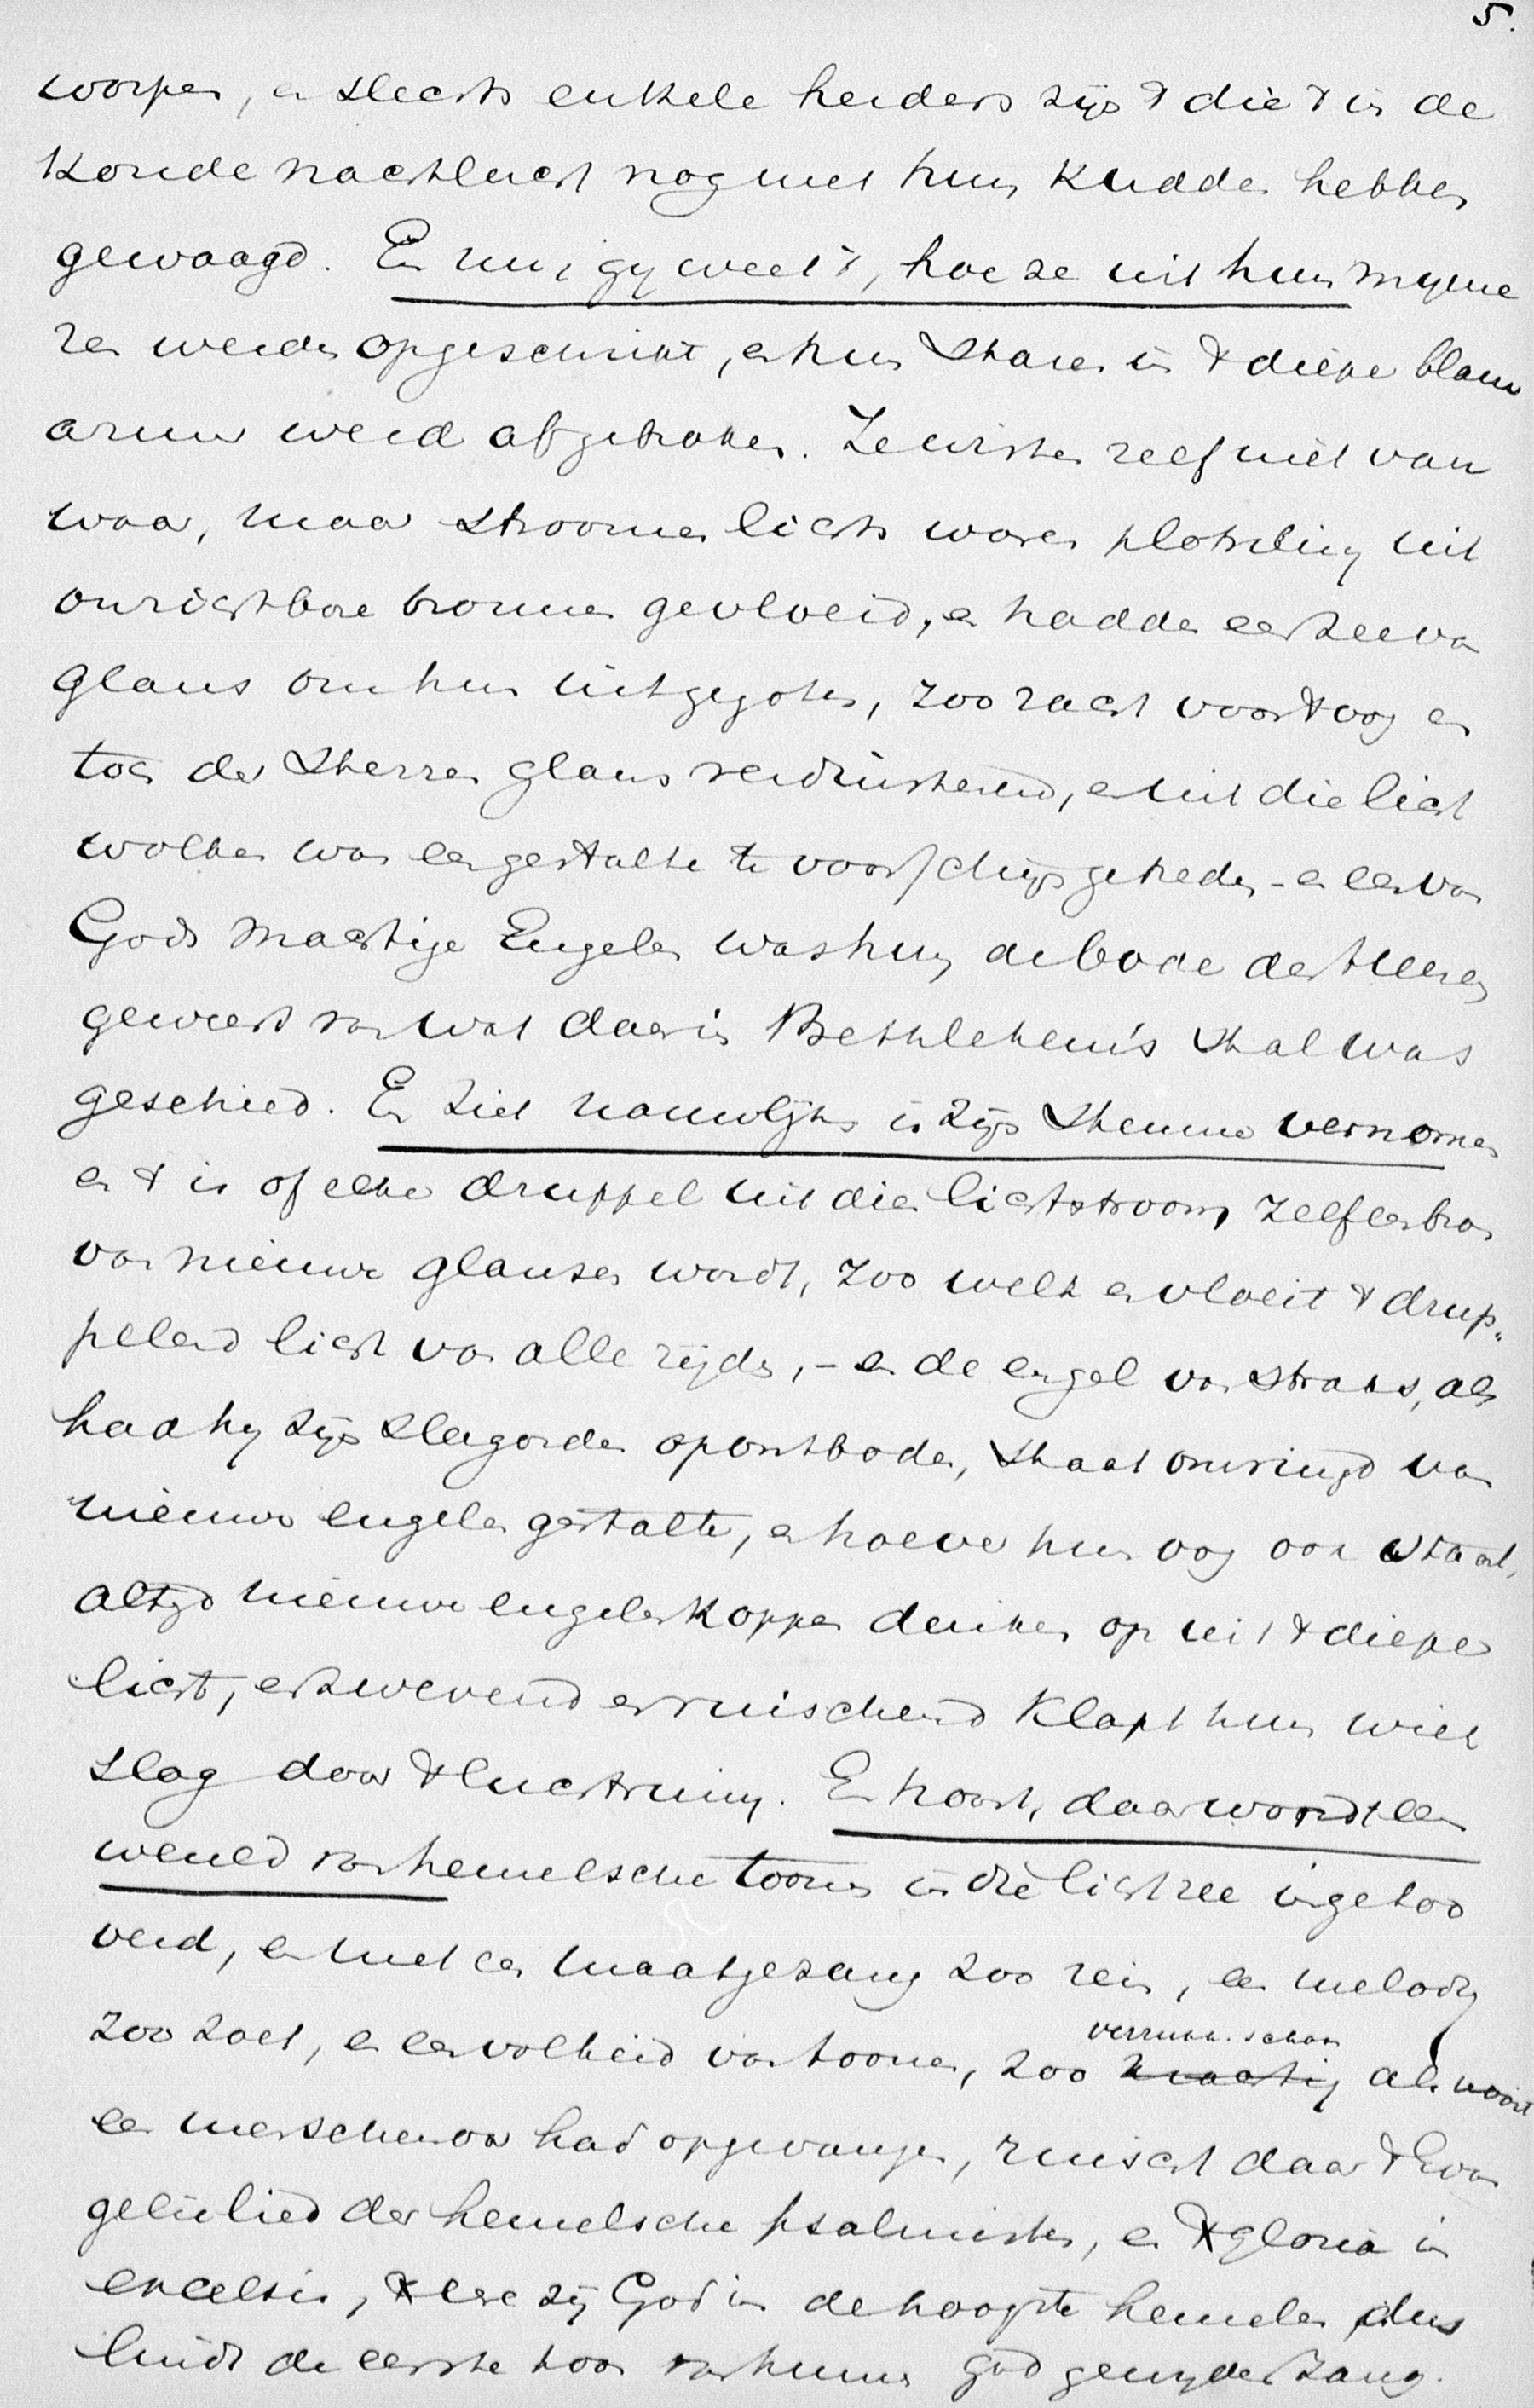 5.
worpen, en slechts enkele herders zijn 't die 't in de
koude nachtlucht nog met hun kudden hebben
gewaagd. En nu, gy weet 't, hoe ze uit hun mijme
ren werden opgeschrikt, en hun staren in 't diepe blaauw
azuur werd afgebroken. Ze wisten zelf niet van
waar, maar stroomen lichts waren plotseling uit
onzichtbare bronnen gevloeid, en hadden een zee van
glans om hen uitgegoten, zoo zacht voor 't oog en
toch der sterren glans verduisterend, en uit die licht
wolken was een gestalte te voorschijn getreden - en een van
Gods machtige Engelen was hun de bode des Heeren
geweest van wat daar in Bethlehem's stal was
geschied. En ziet naauwlijks is zijn stemme vernomen
en 't is of elke druppel uit dien lichtstroom zelf een bron
van nieuwe glansen wordt, zoo welt en vloeit 't drup„
pelend licht van alle zijden, - en de engel van straks, als
had hy zijn slagorden op ontboden, staat omringd van
nieuwe engelen gestalten, en hoever hun oog ook staart,
altyd nieuwe engelenkoppen duiken op uit 't diepe
licht, en zwevend en ruischend klapt hun wiek
slag door 't luchtruim. En hoort, daar wordt een
wereld van hemelsche toonen in die lichtzee ingetoo
verd, en met een maatgezang zoo rein, een melody
zoo zoet, en een volheid van toonen, zoo verrukk. schoon als nooit
een menschenoor had opgevangen, ruischt daar 't Evan
gelielied der hemelsche psalmisten, en 't gloria in
excelsis, 't eere zij God in de hoogste hemelen dus
luidt de eerste toon van hunnen God gewyden zang.